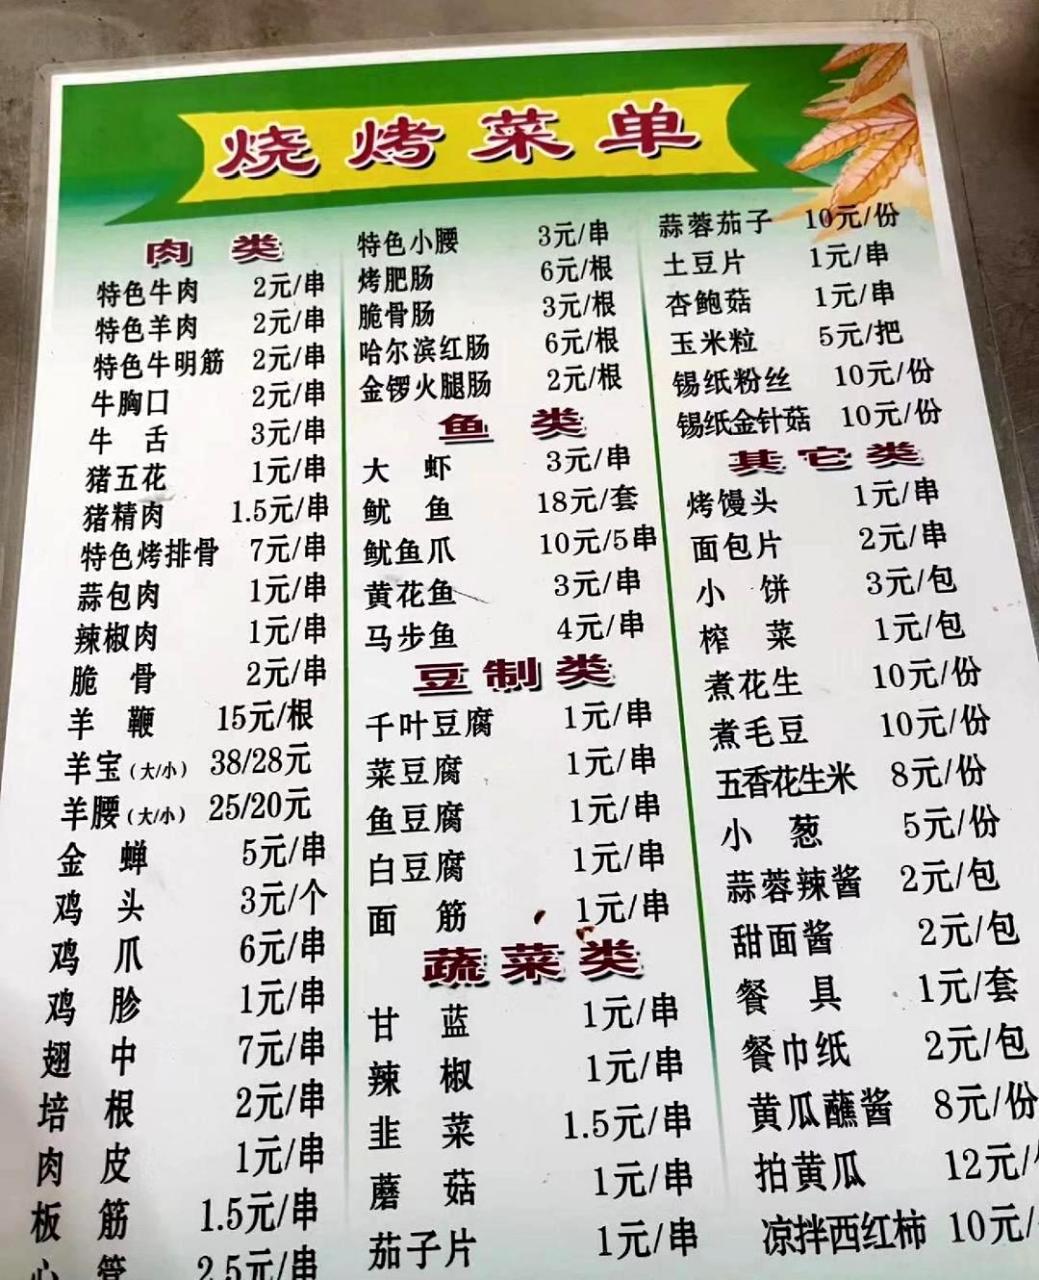 烧烤菜单
肉 类
特色牛肉 2元/串
特色羊肉 2元/串
特色牛明筋 2元/串
牛胸口 2元/串
牛 舌 3元/串
猪五花 1元/串
猪精肉 1.5元/串
特色烤排骨 7元/串
蒜包肉 1元/串
辣椒肉 1元/串
脆 骨 2元/串
羊 鞭 15元/根
羊宝(大/小) 38/28元
羊腰(大/小) 25/20元
金 蝉 5元/串
鸡 头 3元/个
鸡 爪 6元/串
鸡 胗 1元/串
翅 中 7元/串
培 根 2元/串
肉 皮 1元/串
板 筋 1.5元/串
心 管 2.5元/串
特色小腰 3元/串
烤肥肠 6元/根
脆骨肠 3元/根
哈尔滨红肠 6元/根
金锣火腿肠 2元/根
鱼 类
大 虾 3元/串
鱿 鱼 18元/套
鱿鱼爪 10元/5串
黄花鱼 3元/串
马步鱼 4元/串
豆制类
千叶豆腐 1元/串
菜豆腐 1元/串
鱼豆腐 1元/串
白豆腐 1元/串
面 筋 1元/串
蔬菜类
甘 蓝 1元/串
辣 椒 1元/串
韭 菜 1.5元/串
蘑 菇 1元/串
茄子片 1元/串
蒜蓉茄子 10元/份
土豆片 1元/串
杏鲍菇 1元/串
玉米粒 5元/把
锡纸粉丝 10元/份
锡纸金针菇 10元/份
其它类
烤馒头 1元/串
面包片 2元/串
小 饼 3元/包
榨 菜 1元/包
煮花生 10元/份
煮毛豆 10元/份
五香花生米 8元/份
小 葱 5元/份
蒜蓉辣酱 2元/包
甜面酱 2元/包
餐 具 1元/套
餐巾纸 2元/包
黄瓜蘸酱 8元/份
拍黄瓜 12元/
凉拌西红柿 10元/